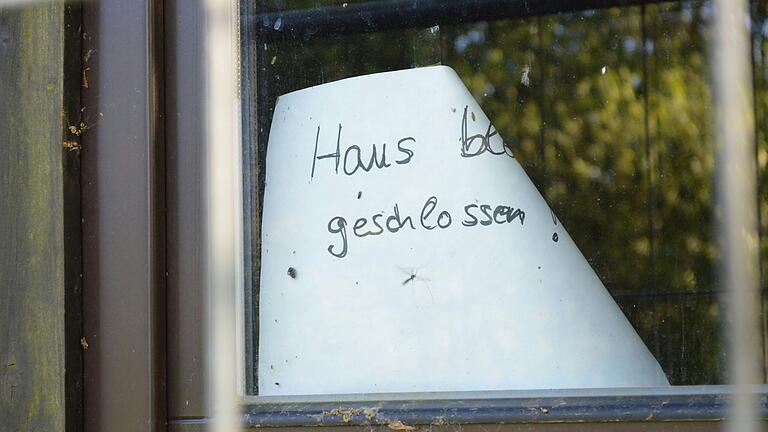 Haus
geschlossen!